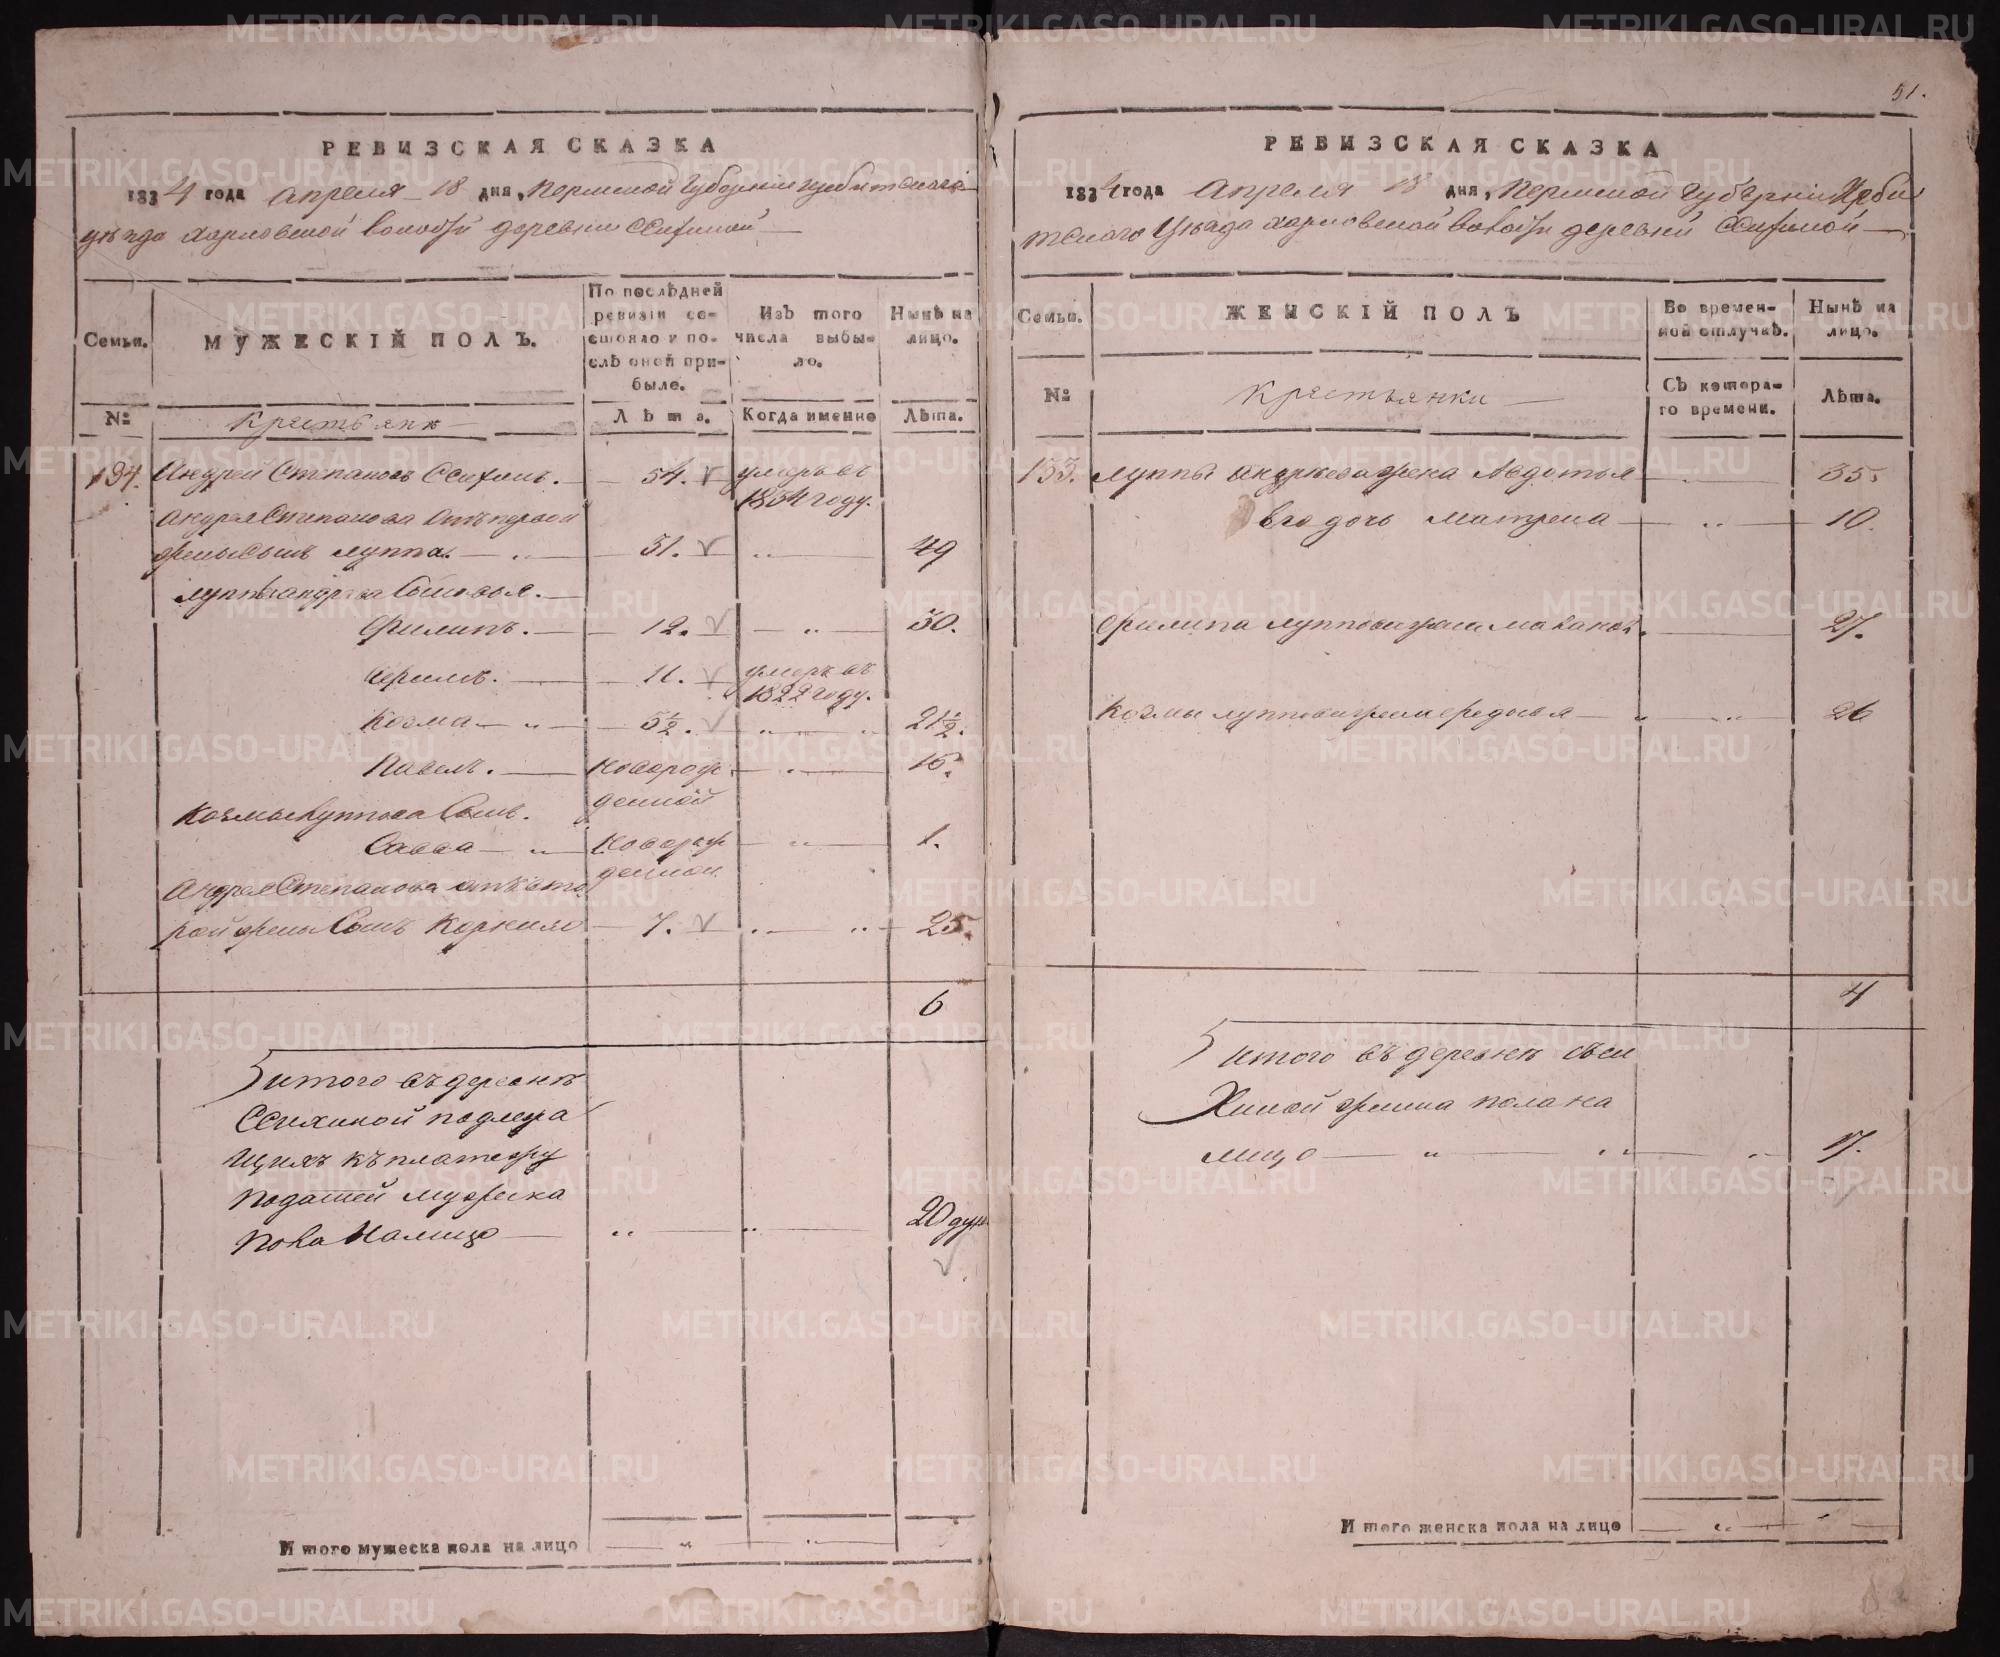 РЕВИЗСКАЯ СКАЗКА
1834 года Апреля 18 дня, Пермской Губернiи Ирбитскаго
уѣзда харловской волости деревни Ссихиной
Семьи.
МУЖЕСКIЙ ПОЛЪ.
По послѣдней ревизiи состояло и послѣ оной прибыле.
Изъ того числа выбыло.
Нынѣ на лицо.
№
Крестьяне
Лѣта.
Когда именно
Лѣта.
134. Андрей Степановъ Ссихинъ. 54. умеръ въ
1834 году.
Андрея Степанова отъ первой
жены сынъ Луппа. 31. 49
Луппы Андреева Сыновья.
Филипъ. 12. 30.
Ефимъ. 11. умеръ въ
1822 году.
Козма 5½. 21½.
Павелъ. новорож 16.
денной
Козмы Луппова Сынъ.
Савва новорож 1.
денной
Андрея Степанова отъ вто
рой жены Сынъ Корнило 7. 25.
6
итого въ деревнѣ
Ссихиной подлежа
щихъ къ платежу
податей мужеска
пола На лицо 20 душ
Итого мужеска пола на лицо
51.
РЕВИЗСКАЯ СКАЗКА
1834 года Апреля 18 дня, Пермской Губернiи Ирби
тскаго Уѣзда харловской волости деревни Ссихиной
Семьи.
ЖЕНСКIЙ ПОЛЪ
Во временной отлучкѣ.
Нынѣ на лицо.
№
Крестьянки
Съ котораго времени.
Лѣта.
133. Луппы Андреева жена Авдотья 35
Его дочь Матрена 10.
Филипа Луппова жена 27.
Козмы Луппова жена 26
4
итого въ деревнѣ Сси
Хиной женска пола на
лицо 17.
Итого женска пола на лицо
METRIKI.GASO-URAL.RU